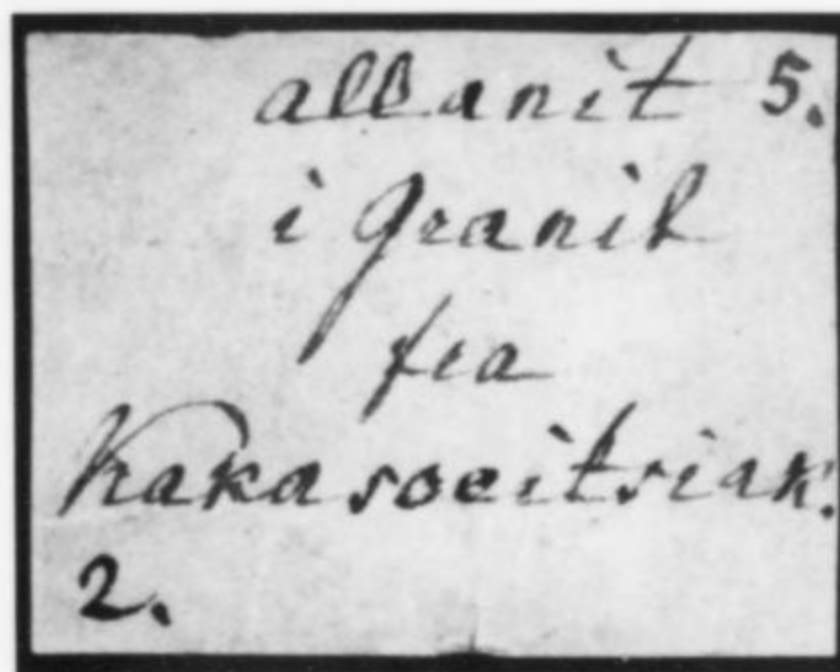 allanit 5.
i Granit
fra
Kakasoeitsiak.
2.